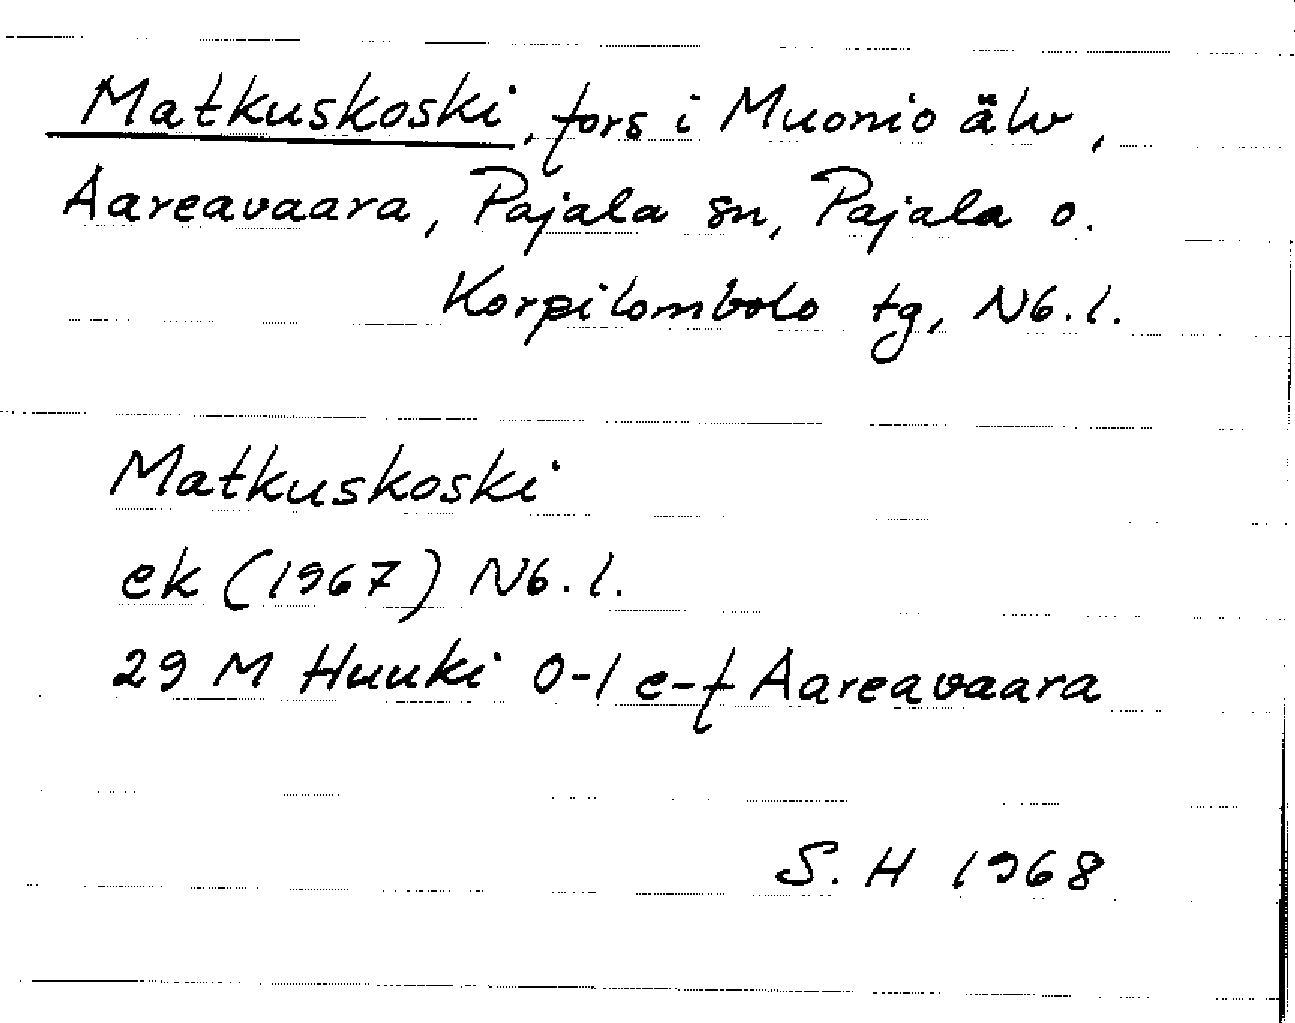 Matkuskoski, fors i Muonio älv,
Aareavaara, Pajala sn, Pajala o.
Korpilombolo tg, Nb. l.
Matkuskoski
ek (1967) Nb. l.
29 M Huuki 0-1 e-f Aareavaara
S. H 1968